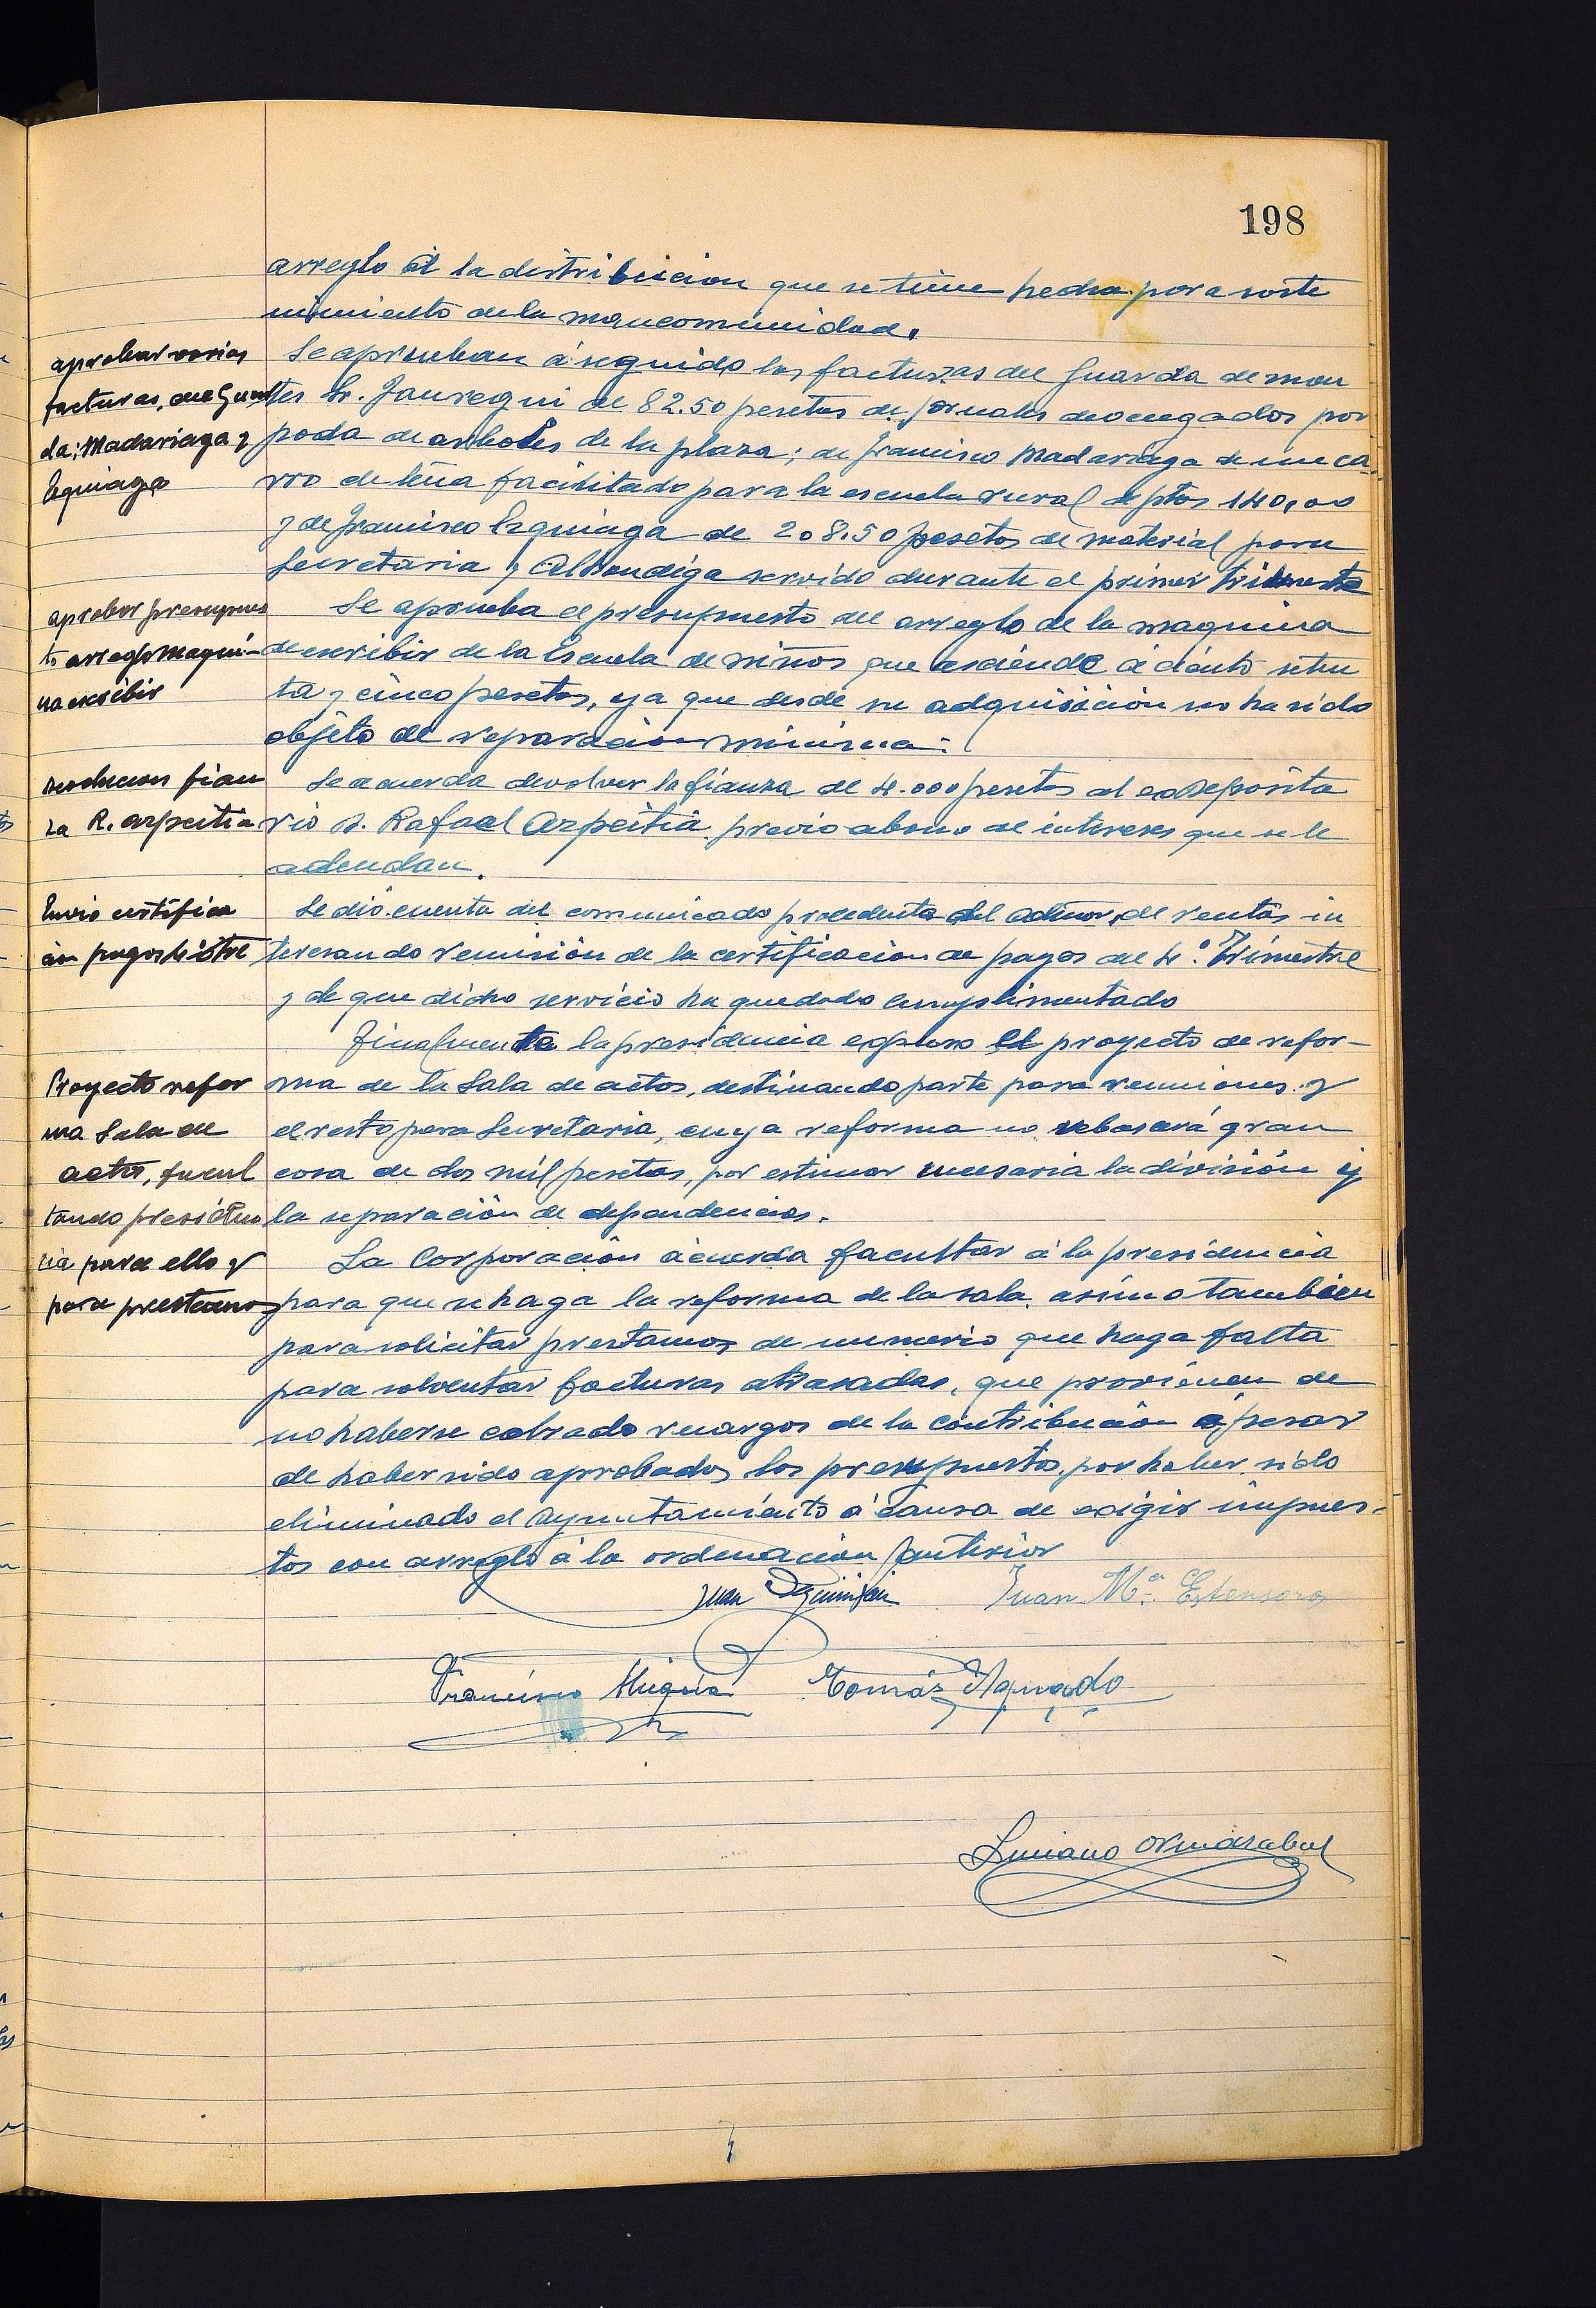 198
arreglo á la distribucion que se tiene hecha para soste
nimiento de la mancomunidad.
aprobar varias
facturas, del Guar
da; Madariaga y
Eguiaga
Se aprueban á seguido las facturas del Guarda de mon
tes Sr. Jauregui de 82.50 pesetas de jornales devengados por
poda de arboles de la plaza; de Francisco Madariaga de un ca
rro de leña facilitado para la escuela rural de ptas 140,00
y de Francisco Eguiaga de 208.50 pesetas de material para
Secretaria y Alhondiga servido durante el primer trimestre
aprobar presupues
to arreglo maqui-
na escribir
Se aprueba el presupuesto del arreglo de la maquina
de escribir de la Escuela de niños que asciende á ciento seten
ta y cinco pesetas, ya que desde su adquisición no ha sido
objeto de reparación minima.
devolucion fian
za R. azpeitia
Se acuerda devolver la fianza de 4.000 pesetas al exdeposita
rio D. Rafael Azpeitia previo abono de intereses que se le
adeudan.
Envio certifica
ión pagos 4º tre
Se dió cuenta del comunicado procedente del admor, de rentas in
teresando remisión de la certificacion de pagos del 4º. Trimestre
y de que dicho servicio ha quedado cumplimentado
Finalmente la presidencia expuso el proyecto de refor-
Proyecto refor
ma Sala de
actos, facul
tando presiden
cia para ello y
para prestamos
ma de la Sala de actos, destinando parte para reuniones y
el resto para Secretaria, cuya reforma no rebasará gran
cosa de dos mil pesetas, por estimar necesaria la división y
la separación de dependencias.
La Corporación acuerda facultar á la presidencia
para que se haga la reforma de la sala, asimo tambien
para solicitar prestamos de numerio que haga falta
para solventar facturas atrasadas, que provienen de
no haberse cobrado recargos de la contribución a pesar
de haber sido aprobados los presupuestos, por haber sido
eliminado el Ayuntamiento á causa de exigir impues-
tos con arreglo á la ordenacion anterior
Juan Juan Mª. Estensoro
Francisco Tomás Aguado
Luciano Ormazabal